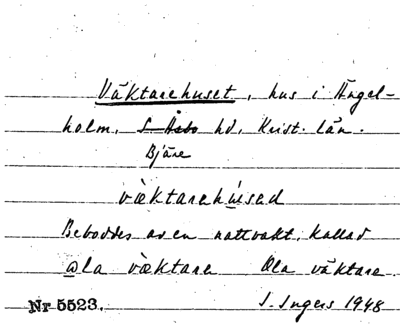 Väktarehuset, hus i Ängel-
holm, S. Åsbo hd, Krist. län.
Bjäre
vœ̀ktarehúised
Beboddes av en nattvakt, kallad
ola vœktare Ola väktare.
Nr 5523. I. Ingers 1948